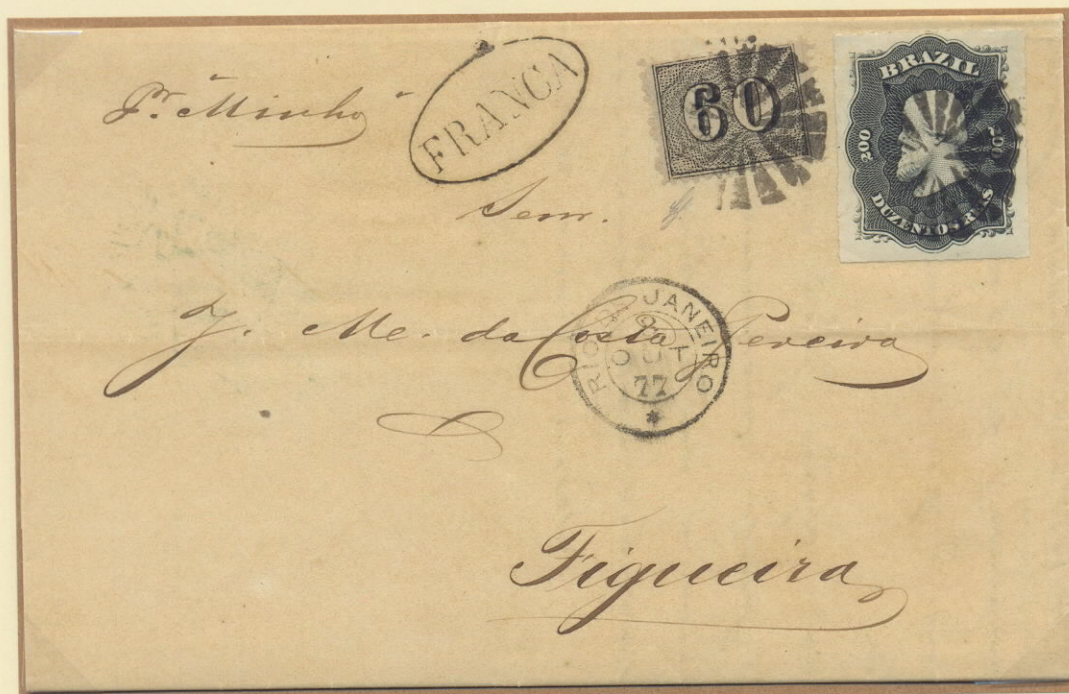 Pr. "Minho"
FRANCA
60
BRAZIL
200 200
DUZENTOS REIS
Senr.
J. Me. da Costa Pereira
RIO DE JANEIRO
9
OUT
77
*
Figueira